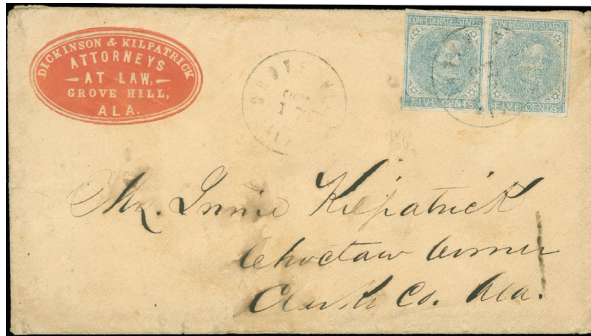 DICKINSON & KILPATRICK
ATTORNEYS
AT LAW,
GROVE HILL,
ALA.
GROVE HILL
OCT
17
CONFEDERATE STATES
FIVE CENTS
CONFEDERATE STATES
FIVE CENTS
Mr. Kilpatrick
Choctaw Corner
Clark Co. Ala.